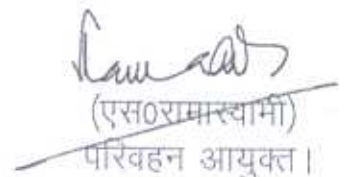 (एस0रामास्वामी)
परिवहन आयुक्त।